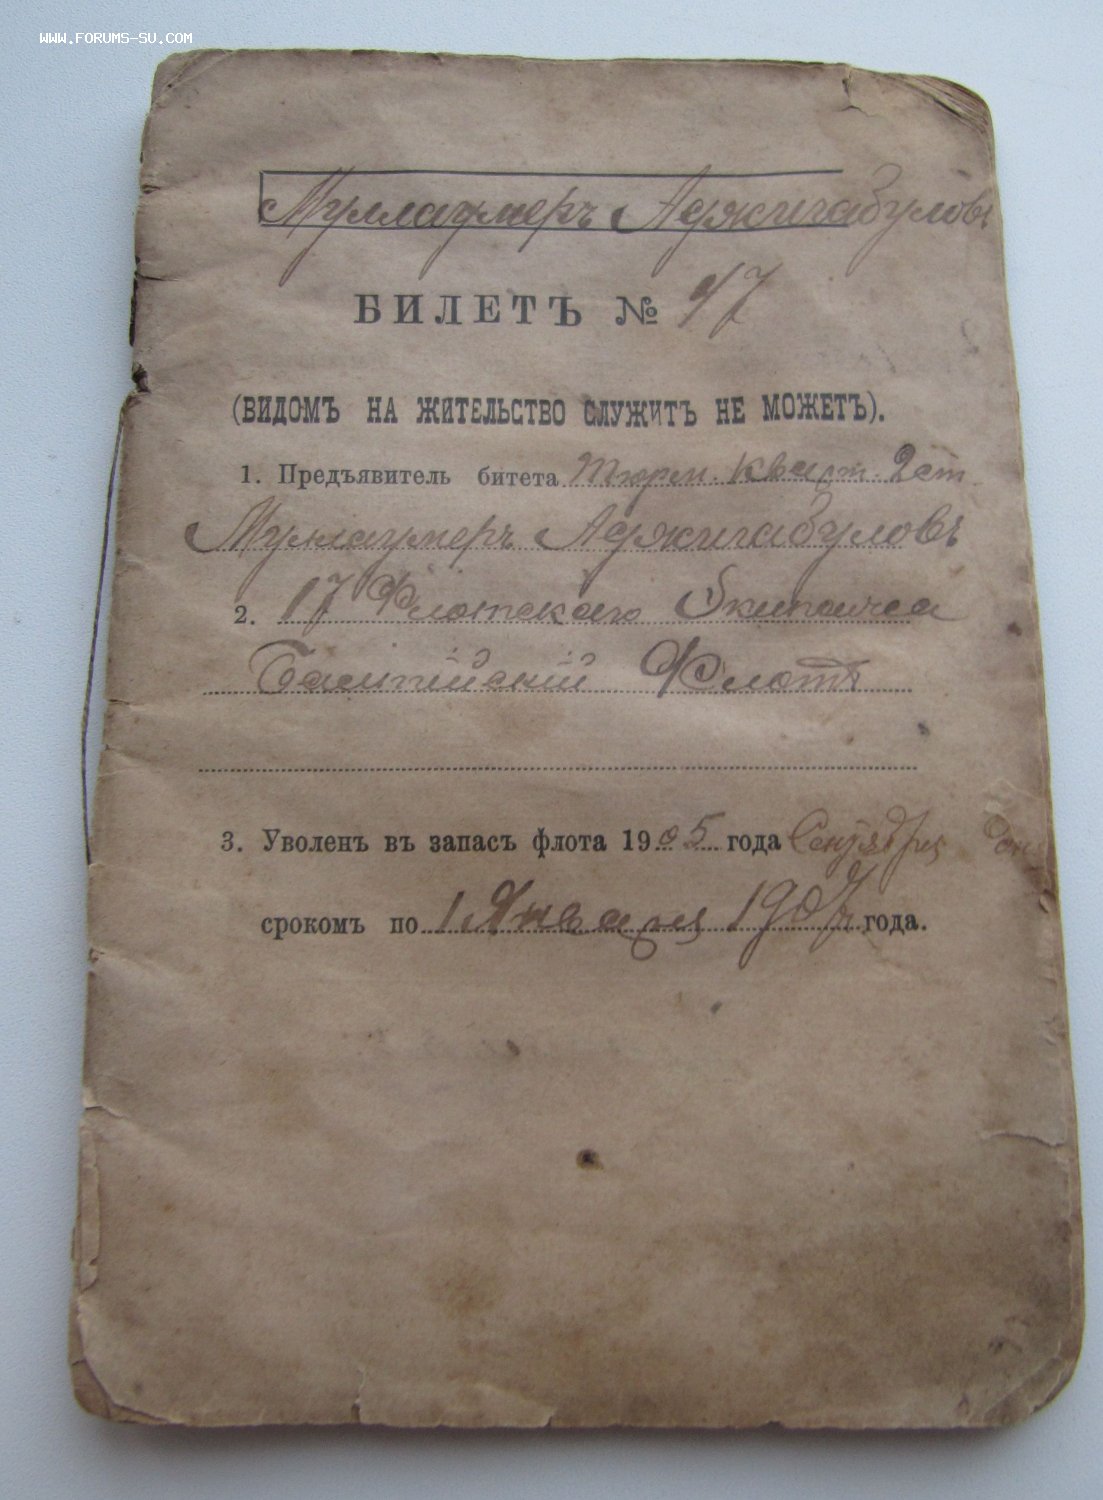 WWW.FORUMS-SU.COM
Муллаумеръ Аджигабуловъ
БИЛЕТЪ № 47
(ВИДОМЪ НА ЖИТЕЛЬСТВО СЛУЖИТЪ НЕ МОЖЕТЪ).
1. Предъявитель битета Тюрм. Кварт. 2 ст.
Муллаумеръ Аджигабуловъ
2. 17 Флотскаго Экипажа
Балтійскій Флотъ
3. Уволенъ въ запасъ флота 1905 года Сентября
срокомъ по 1 Января 1907 года.